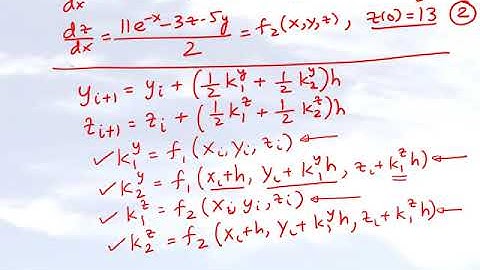 dx
dz/dx = (11e^-x - 3z - 5y)/2 = f₂(x, y, z), z(0) = 13 ②
y_i+1 = y_i + (1/2 k₁^y + 1/2 k₂^y)h
z_i+1 = z_i + (1/2 k₁^z + 1/2 k₂^z)h
✓ k₁^y = f₁(x_i, y_i, z_i) ←
✓ k₂^y = f₁(x_i+h, y_i+k₁^y h, z_i+k₁^z h) ←
✓ k₁^z = f₂(x_i, y_i, z_i) ←
✓ k₂^z = f₂(x_i+h, y_i+k₁^y h, z_i+k₁^z h) ←